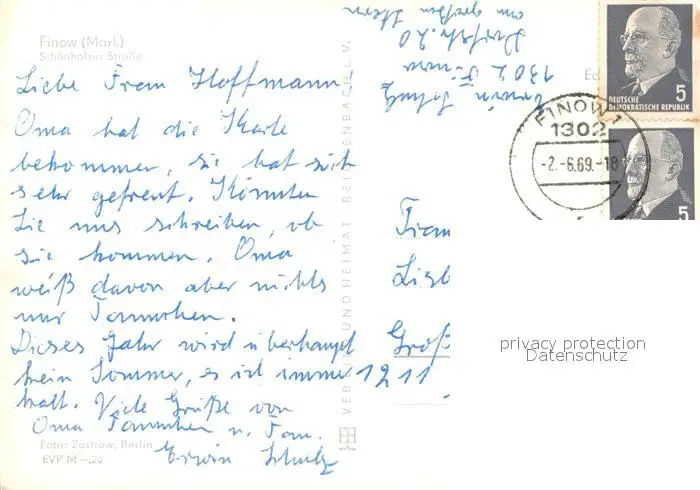 Finow (Mark)
Schönholzer Straße
Liebe Frau Hoffmann,
Oma hat die Karte
bekommen, sie hat sich
sehr gefreut. Könnten
Sie uns schreiben, ob
sie kommen. Oma
weiß davon aber nichts
nur Tannchen.
Dieses Jahr wird überhaupt
kein Sommer, es ist immer
kalt. Viele Grüße von
Oma Tannchen u. Fam.
Erwin Schulz
Foto: Zastrow, Berlin
EVP M -,20
VEB BILD UND HEIMAT REICHENBACH I. V.
Erwin Schulz
1302 Finow
20
am großen Stern
DEUTSCHE
DEMOKRATISCHE REPUBLIK
5
FINOW 1
1302
-2.-6.69.-18
5
Frau
Lisb
Groß
1211
privacy protection
Datenschutz